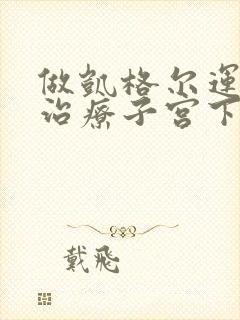 做凯格尔運
治療子宮下
戴飛